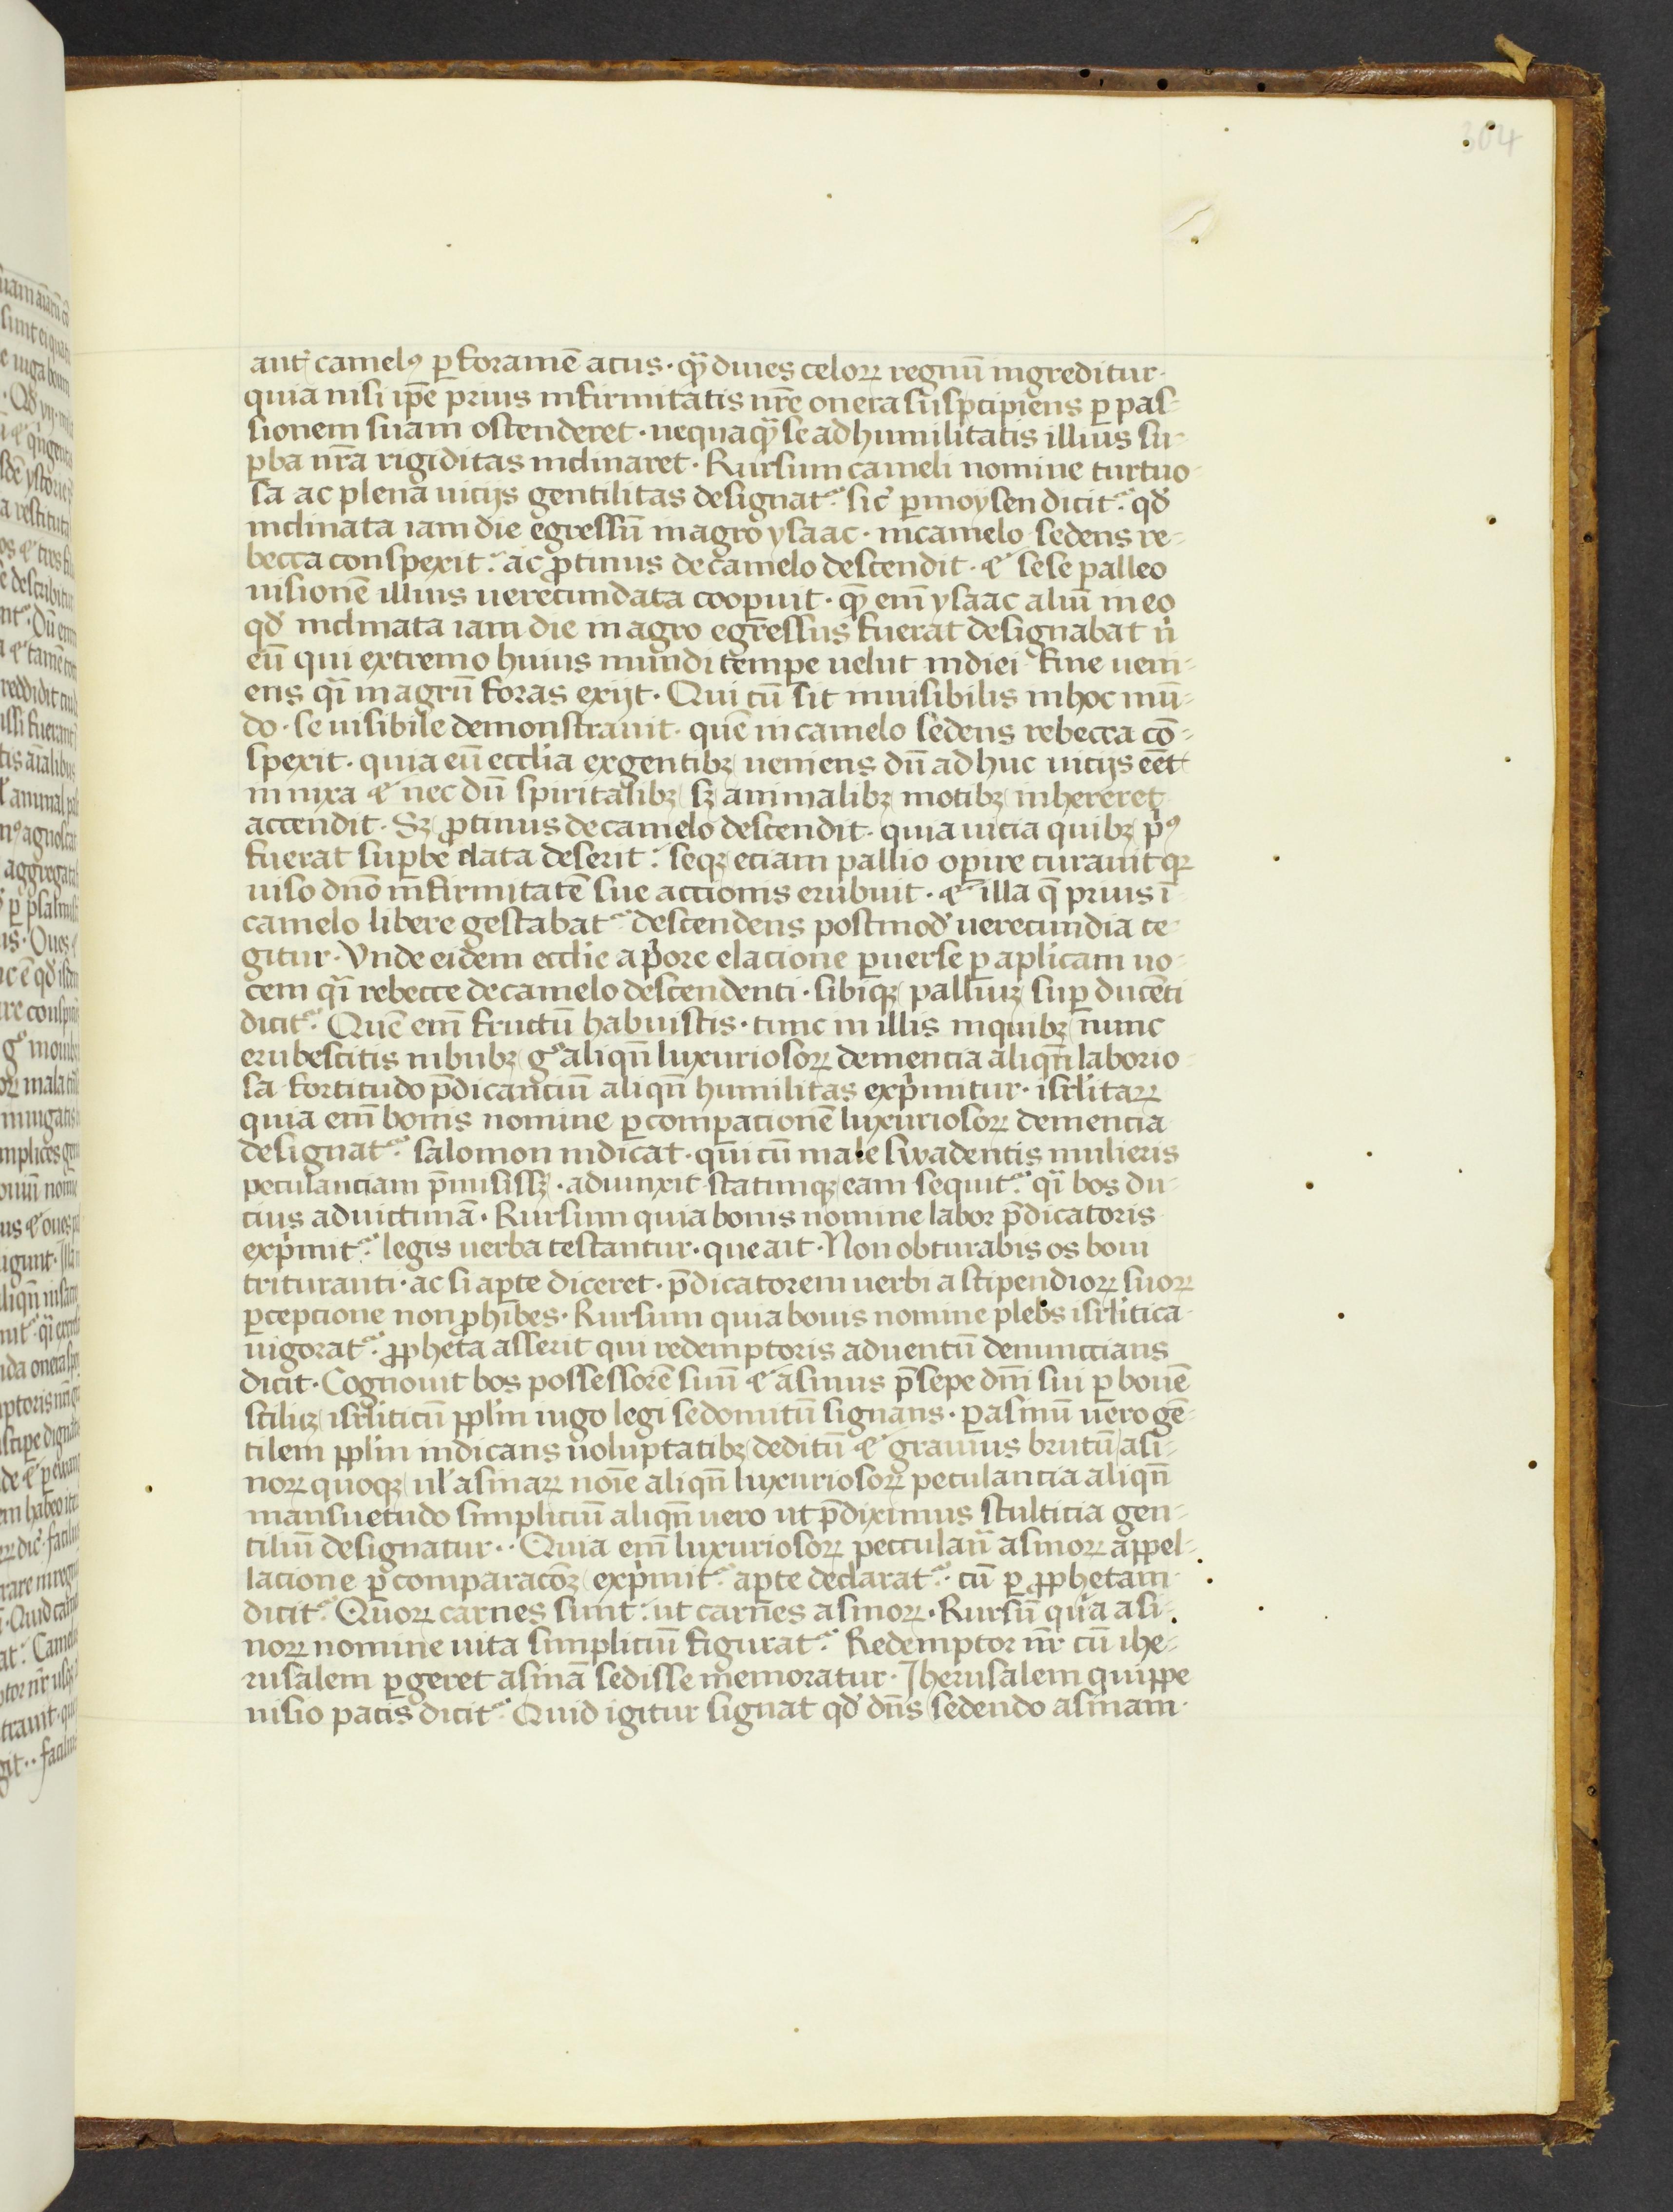 304
aut᷑ camelꝯ ꝑ foramē acus · qᷓꝫ diues celoꝝ regnū ingreditur ·
quia nisi ip̄e prius infirmitatis nr̄e onera suspcipiens ꝑ pas-
sionem suam ostenderet · nequaqᷓꝫ se ad humilitatis illius su-
ꝑba nr̄a rigiditas inclinaret · Rursum cameli nomine turtuo-
sa ac plena uicijs gentilitas designat᷑ sic̄ ꝑ moysen dicit᷑ qd̓
inclinata iam die egressū in agro ysaac · in camelo sedens re-
becca conspexit · ac ꝓtinus de camelo descendit · ⁊ sese palleo
uisionē illius uerecundata cooꝑuit · quē em̄ ysaac aliū in eo
qd̓ inclinata iam die in agro egressus fuerat designabat n̓
eū qui extremo huius mundi tempe uelut in diei fine ueni-
ens qᷓi in agrū foras exijt · Qui cū sit inuisibilis in hoc mū-
do · se uisibile demonstrauit · quē in camelo sedens rebecca cō-
spexit · quia eū eccl̓ia ex gentibꝫ ueniens dū ad huc uicijs eēt
in nixa ⁊ nec dū spiritalibꝫ sꝫ animalibꝫ motibꝫ inhereret
accendit · Sꝫ ꝓtinus de camelo descendit · quia uicia quibꝫ pꝰ
fuerat suꝑbe elata deserit · seqꝫ eciam pallio oꝑire curauit qꝛ
uiso dn̄o infirmitatē sue accionis erubuit · ⁊ illa q̄ prius ī
camelo libere gestabat᷑ descendens postmod̓ uerecundia te-
gitur · Vnde eidem eccl̓ie a p̓ore elacione ꝑuerse ꝑ apl̓icam uo-
cem qᷓi rebecce de camelo descendenti · sibiqꝫ palliuꝫ suꝑ ducēti
dicit᷑ Quē em̄ fructū habuistis · tunc in illis in quibꝫ nunc
erubescitis in bubꝫ gᷓ aliqn̄ luxuriosoꝝ demencia aliqn̄ laborio-
sa fortitudo p̄dicanciū aliqn̄ humilitas exp̓mitur · isrl̓itaꝝ
quia em̄ bouis nomine ꝑ comꝑacionē luxuriosoꝝ demencia
designat᷑ salomon indicat · qui cū male swadentis mulieris
petulanciam p̄misissꝫ · adiunxit statimqꝫ eam sequit᷑ qᷓi bos du-
ctus ad uictimā · Rursum quia bouis nomine labor p̄dicatoris
exp̓mit᷑ legis uerba testantur · que ait · Non obturabis os boui
trituranti · ac si aꝑte diceret · p̄dicatorem uerbi a stipendioꝝ suoꝝ
ꝑcepcione non ꝓhibes · Rursum quia bouis nomine plebs isrl̓itica
uigorat᷑ · ꝓpheta asserit qui redemptoris aduentū denuncians
dicit · Cognouit bos possessorē suū ⁊ asinus p̄sepe dn̄i sui ꝑ bouē
scilicꝫ isrl̓iticū ppl̓m iugo legi se domitū signans · ꝑ asinū uero gē-
tilem ppl̓m indicans uoluptatibꝫ deditū ⁊ grauius brutū asi-
noꝝ quoqꝫ ul̓ asinaꝝ noīe aliqn̄ luxuriosoꝝ petulancia aliqn̄
mansuetudo simpliciū aliqn̄ uero ut p̄diximus stulticia gen-
tiliū designatur · · Quia em̄ luxuriosoꝝ petculanᷓ asinoꝝ appel-
lacione ꝑ comparacōꝫ exp̓mit᷑ aꝑte declarat᷑ · cū ꝑ ꝓphetam
dicit᷑ Quoꝝ carnes sunt · ut carnes asinoꝝ · Rursū quia asi-
noꝝ nomine uita simpliciū figurat᷑ Redemptor nr̄ cū ihe-
rusalem ꝑgeret asinā sedisse memoratur · Jherusalem quippe
uisio pacis dicit᷑ Quid igitur signat qd̓ dn̄s sedendo asinam ·